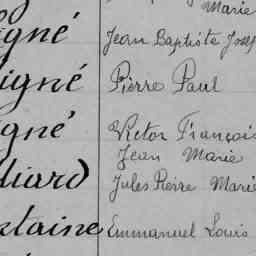 Marie
igné Jean Baptiste Josep
igné Pierre Paul
igné Victor François
Jean Marie
liard Jules Pierre Marie
ntaine Emmanuel Louis